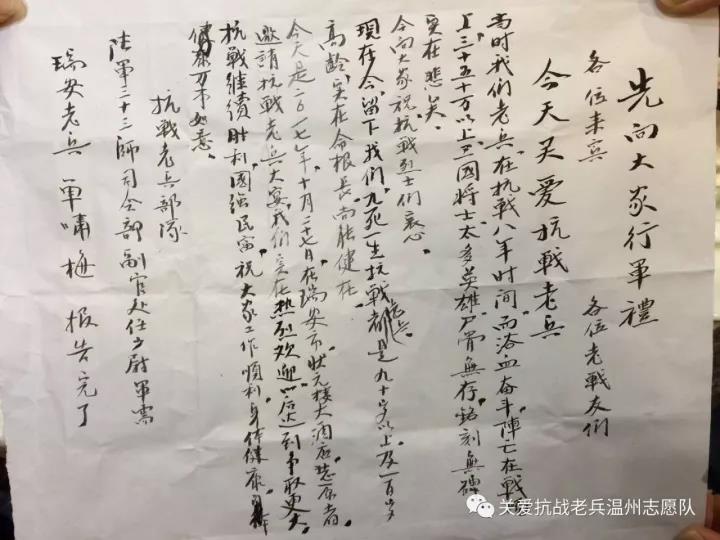 先向大家行軍禮
各位来宾 各位老戰友們
今天关爱抗戰老兵
当时我们老兵在抗戰八年时间,而浴血奋斗,陣亡在戰
上三十五十万以上,卫國将士太多英雄尸骨無存,銘刻無碑
实在悲矣。
今向大家祝抗戰烈士们哀心。
现在令留下我们九死一生抗戰老兵都是九十岁以上及一百岁
高龄,实在命根長,尚能健在。
今天是二0一七年十月二十七日在瑞安市状元楼大酒店志愿者
邀請抗戰老兵大宴,我们实在热烈欢迎,以后达到争取更大
抗戰继續胜利,國強民富,祝大家工作順利身体健康
健康万事如意。
抗戰老兵部隊
陸軍二十三師司令部副官处任少尉軍需
瑞安老兵 單嘯梅 报告完了
关爱抗战老兵温州志愿队